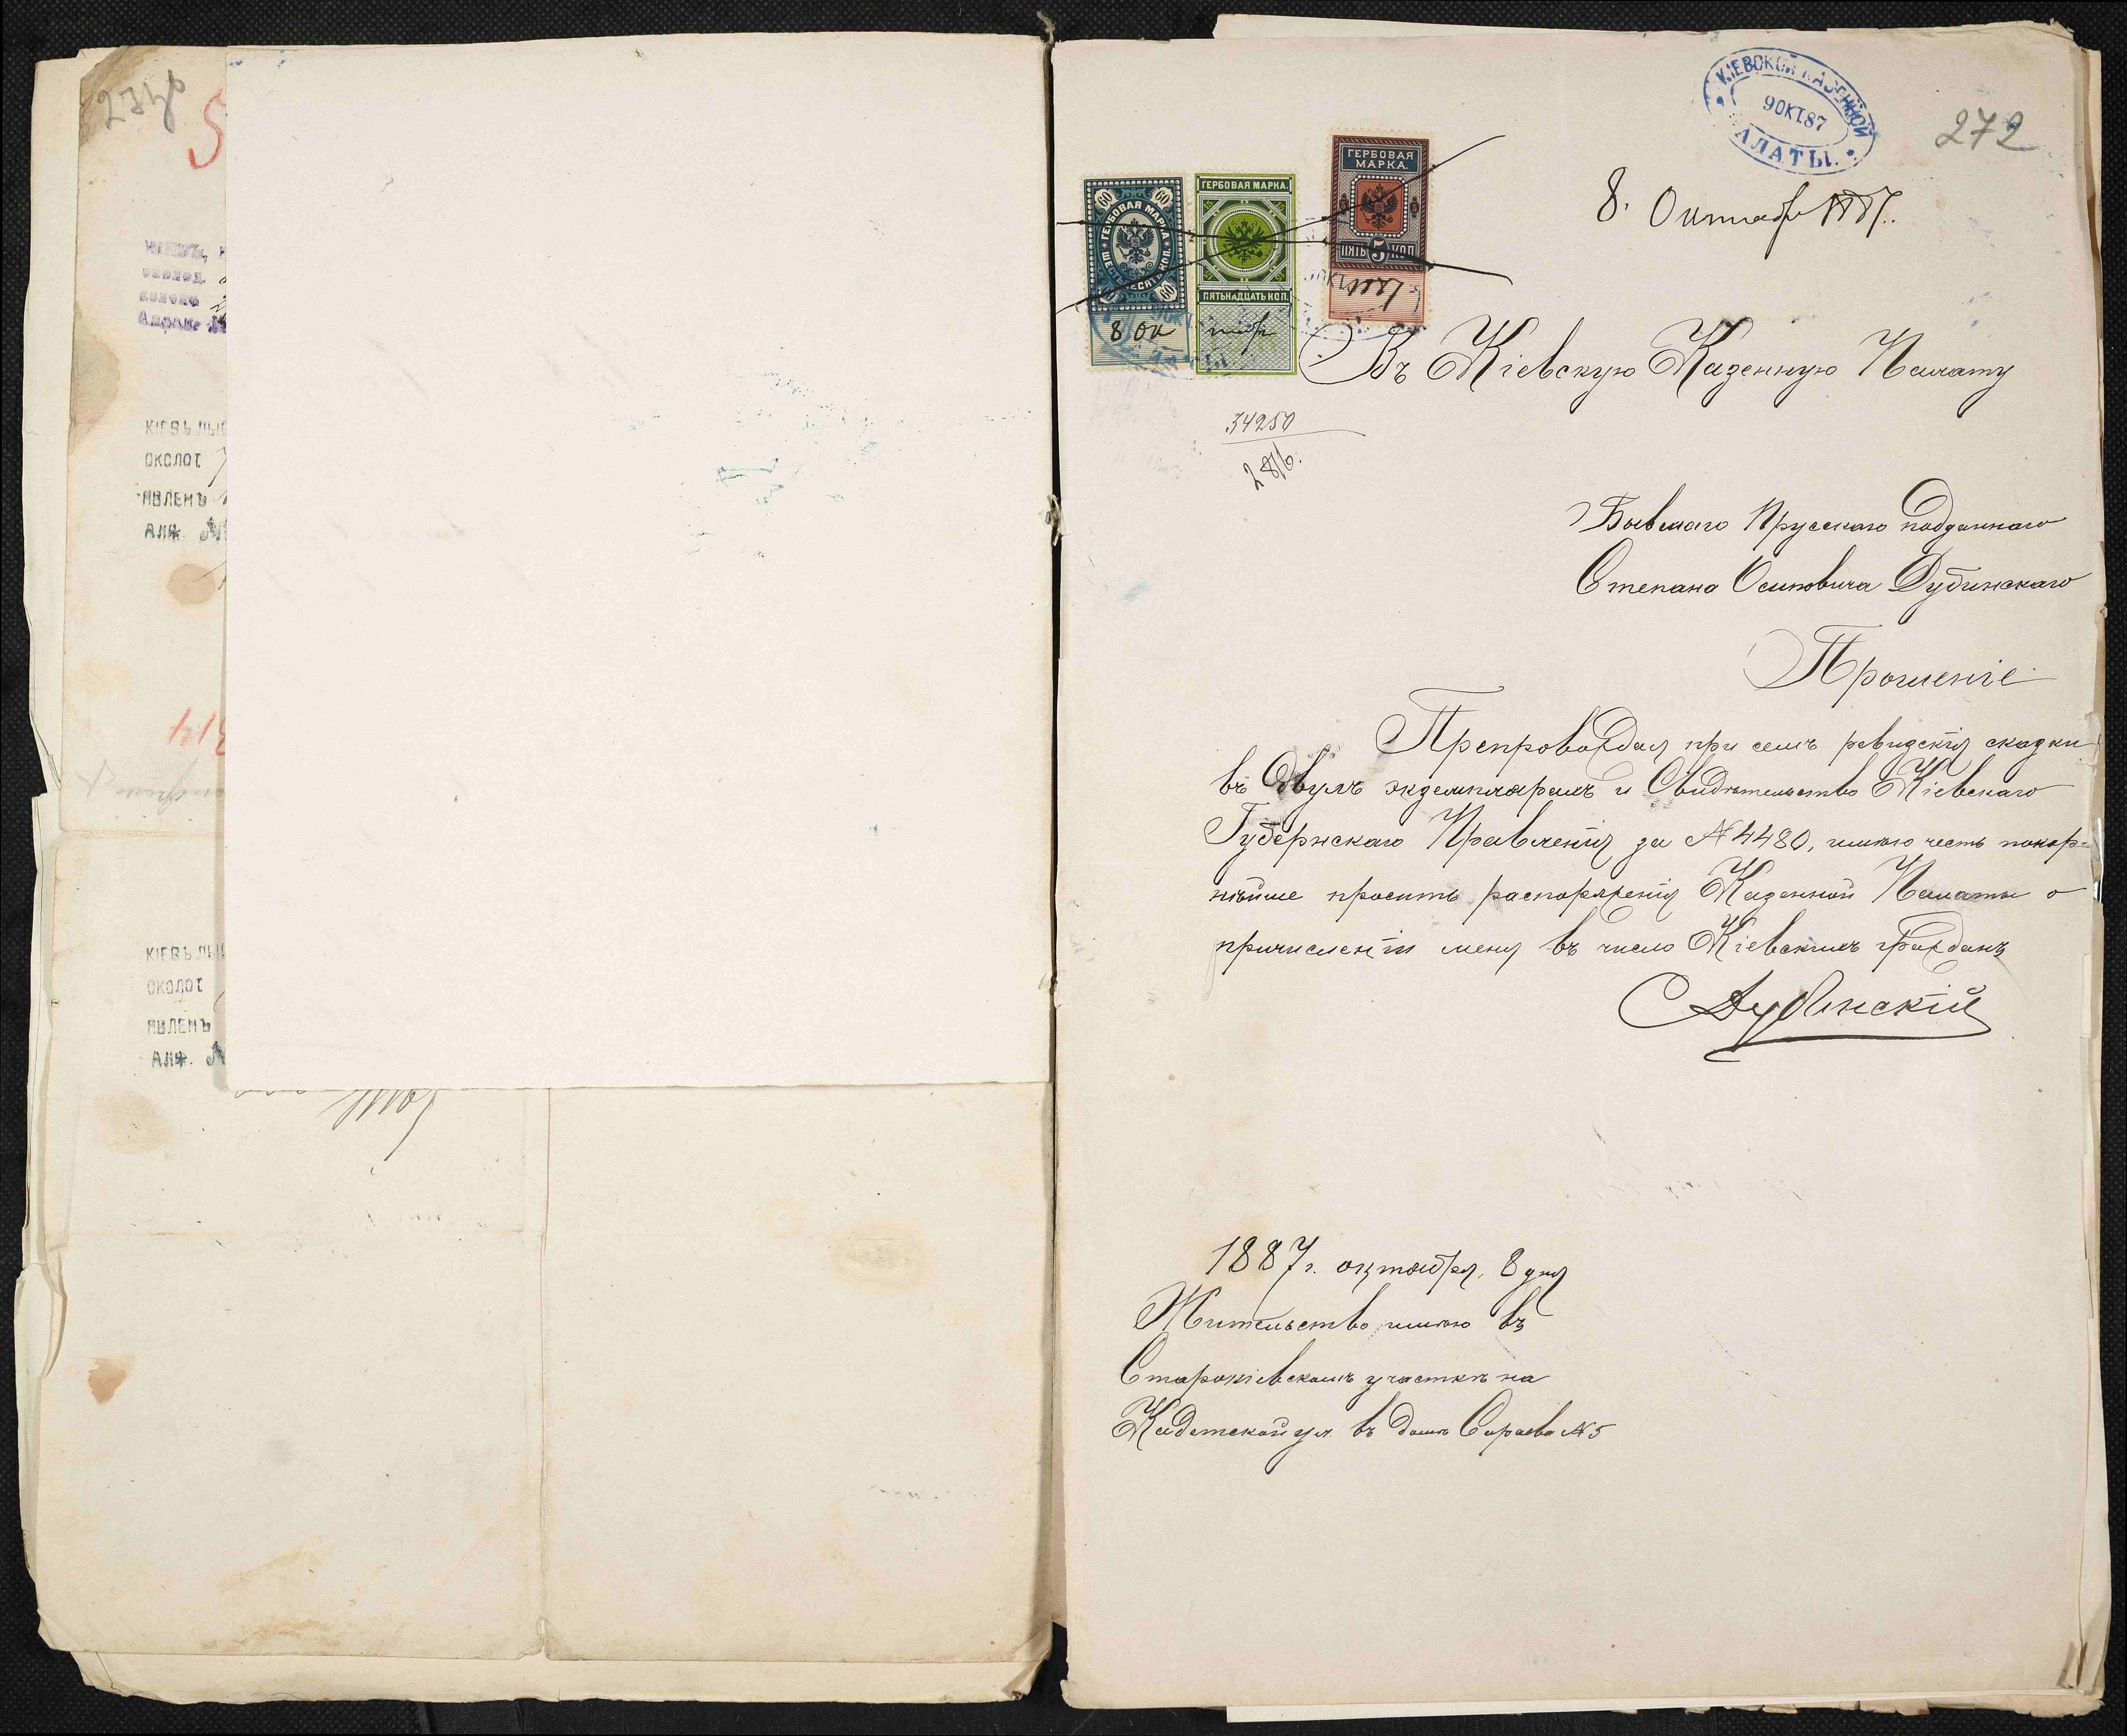 5
КІЕВЪ ЛЫБ
ОКОЛОТ
ЯВЛЕНЪ
АЛФ. №
КІЕВЪ ЛЫБ
ОКОЛОТ
ЯВЛЕНЪ
АЛФ. №
КІЕВСКОЙ КАЗЕННОЙ
9 ОКТ. 87
ПАЛАТЫ.
272
8. Октября 1887.
60 60
ГЕРБОВАЯ МАРКА
ШЕСТЬДЕСЯТЪ КОП.
60
8 Ок
ГЕРБОВАЯ МАРКА.
ПЯТЬНАДЦАТЬ КОП.
тяб.
ГЕРБОВАЯ
МАРКА.
ПЯТЬ 5 КОП.
1887
Въ Кіевскую Казенную Палату
34250
286.
Бывшаго Прусскаго подданнаго
Степана Осиповича Дубинскаго
Прошеніе
Препровождая при семъ ревизскія сказки
въ двухъ экземплярахъ и Свидѣтельство Кіевскаго
Губернскаго Правленія за № 4480, имѣю честь покор=
нѣйше просить распоряженія Казенной Палаты о
причисленіи меня въ число Кіевскихъ гражданъ
С Дубинскій
1887 г. октября, 8 дня
Жительство имѣю въ
Старокіевскомъ участкѣ на
Кадетской ул. въ домѣ Сараева № 5